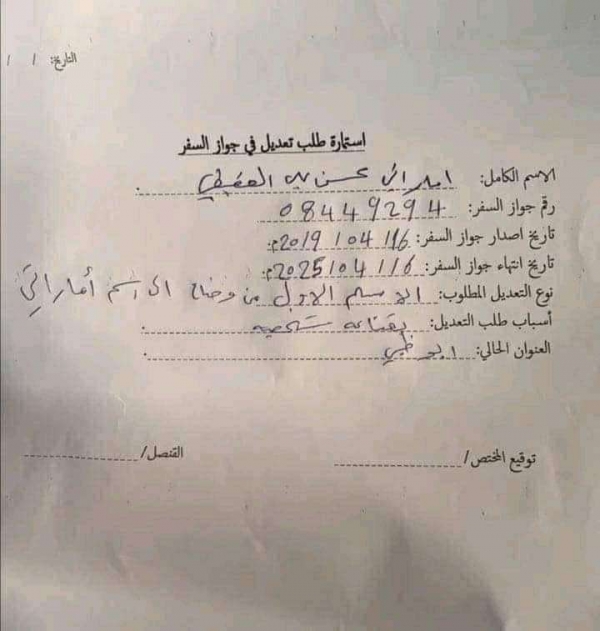 التاريخ: / /
استمارة طلب تعديل في جواز السفر
الاسم الكامل: اماراتي محسن العفيفي
رقم جواز السفر: 08449294
تاريخ اصدار جواز السفر: 2019/04/16م.
تاريخ انتهاء جواز السفر: 2025/04/16م.
نوع التعديل المطلوب: الاسم الاول من وضاح الى اسم أماراتي
أسباب طلب التعديل: بقناعه شخصيه
العنوان الحالي: ابو ظبي
توقيع المختص/ القنصل/